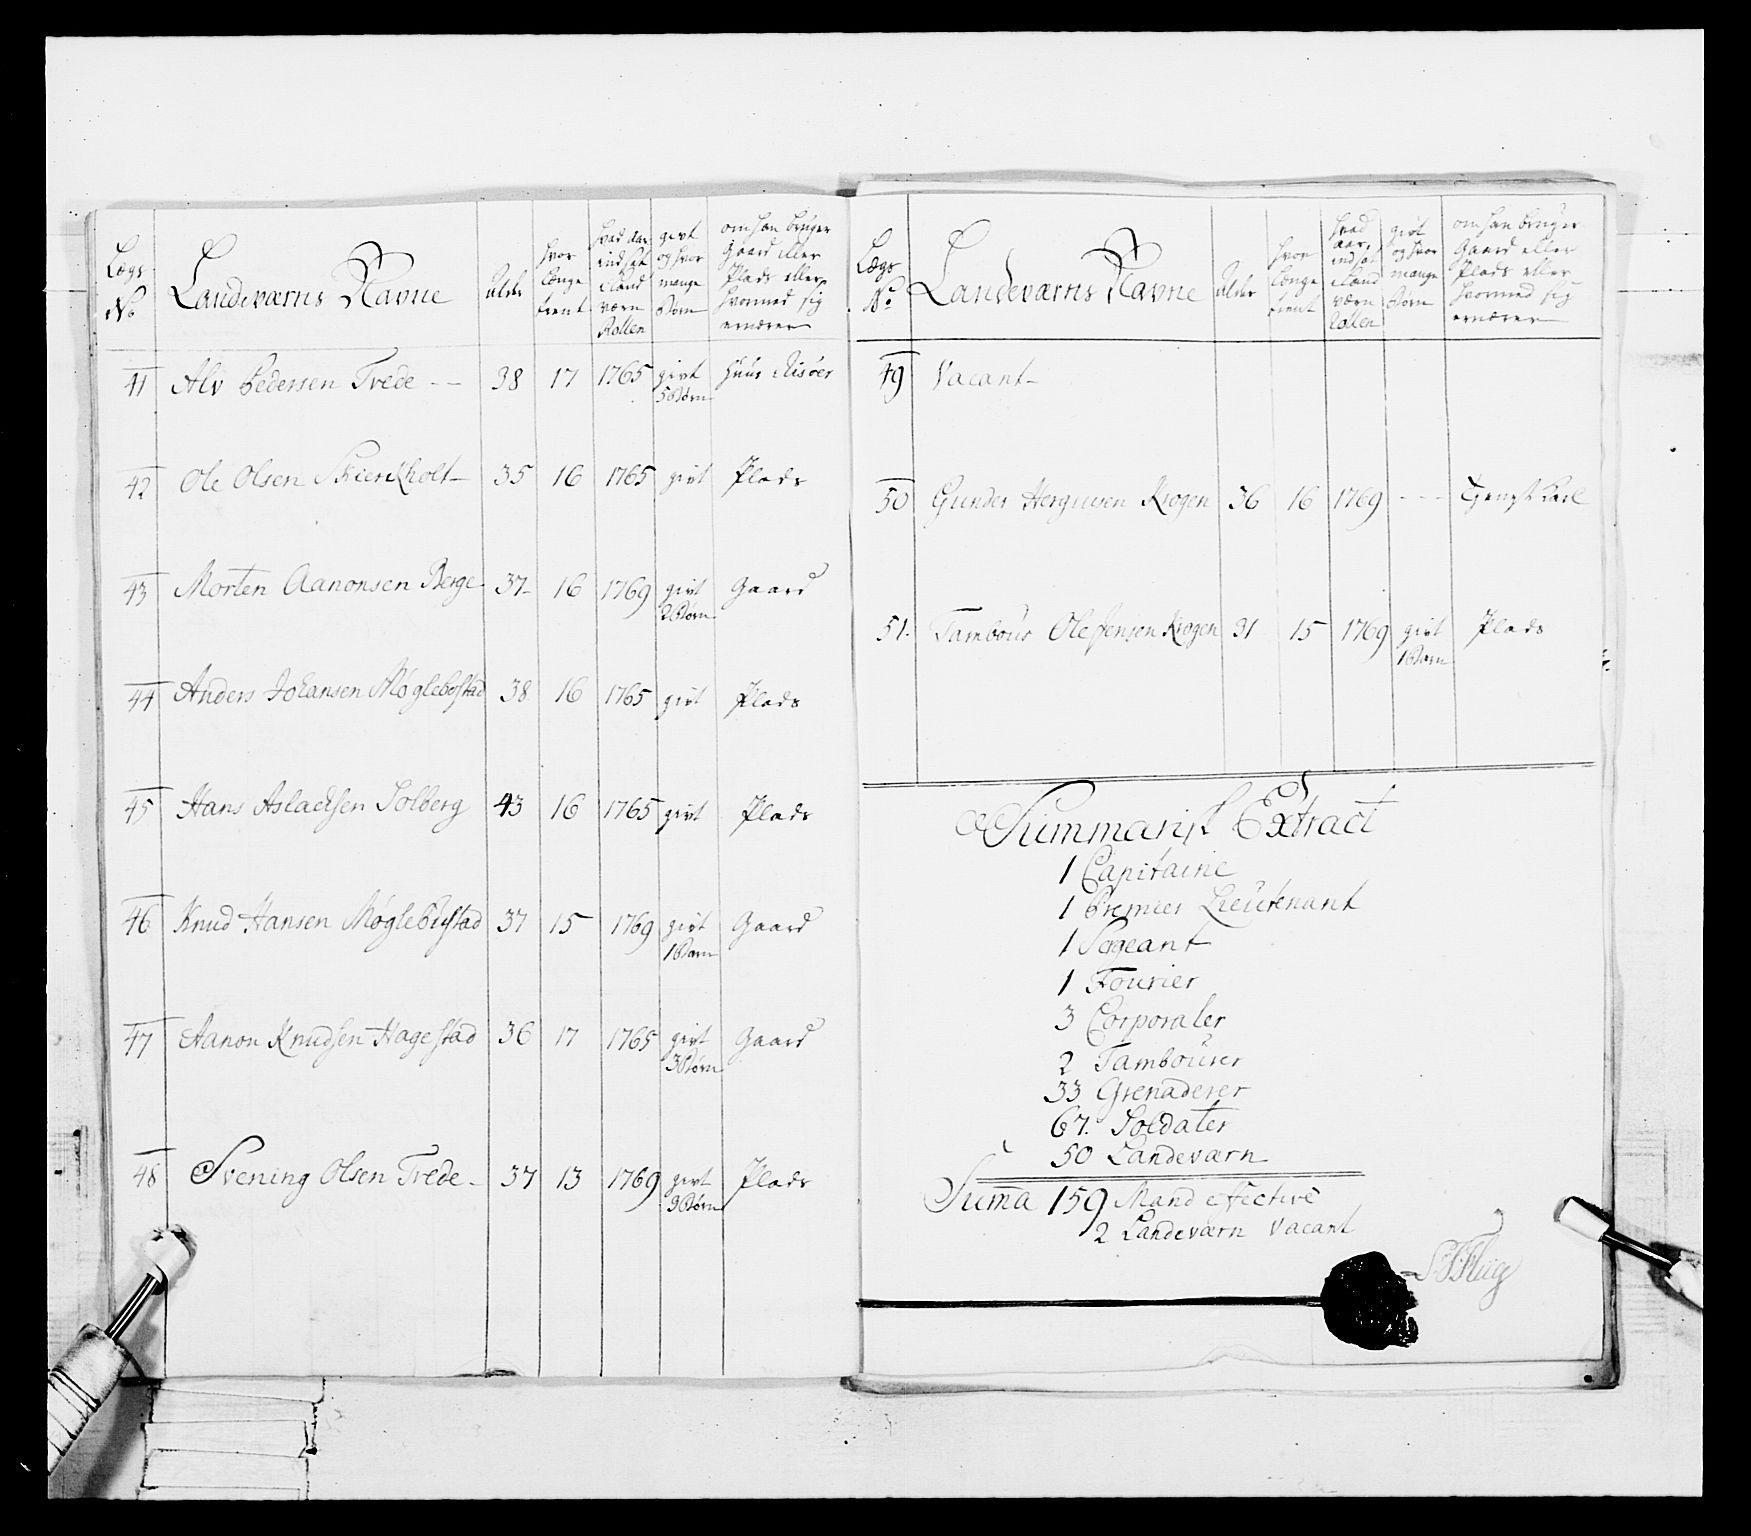 Lægs No
Landeværns Navne
Alder
hvor længe tient
hvad Aar indsat i Land værn Rollen
givt og hvor mange Børn
om han bruger Gaard eller Plads eller hvormed sig ernærer
41 Alv Pedersen Trede -- 38 17 1765 givt 5 Børn huus Risøer
42 Ole Olsen Skierkholt 35 16 1765 givt Plads
43 Morten Aanonsen Berge 37 16 1769 givt 2 Børn Gaard
44 Anders Johansen Møglebostad 38 16 1765 givt Plads
45 Hans Aslachsen Solberg 43 16 1765 givt Plads
46 Knud Hansen Møglebustad 37 15 1769 givt 1 Barn Gaard
47 Aanon Knudsen Hagestad 36 17 1765 givt 3 Børn Gaard
48 Svening Olsen Trede 37 13 1769 givt 3 Børn Plads
Lægs No
Landeværns Navne
Alder
hvor længe tient
hvad aar indsat i Land værn Rollen
givt og hvor mange Børn
om han bruger Gaard eller Plads eller hvormed sig ernærer
49 Vacant
50 Gunder Hergusen Krogen 36 16 1769 ---
51. Tambour Ole Jensen Krogen 31 15 1769 givt 1 Barn Plads
Summarisk Extract
1 Capitaine
1 Premier Lieutenant
1 Sergeant
1 Fourier
3 Corporaler
2 Tambourer
33 Grenaderer
67. Soldater
50 Landeværn
Suma 159 Mand efective
2 Landeværn Vacant